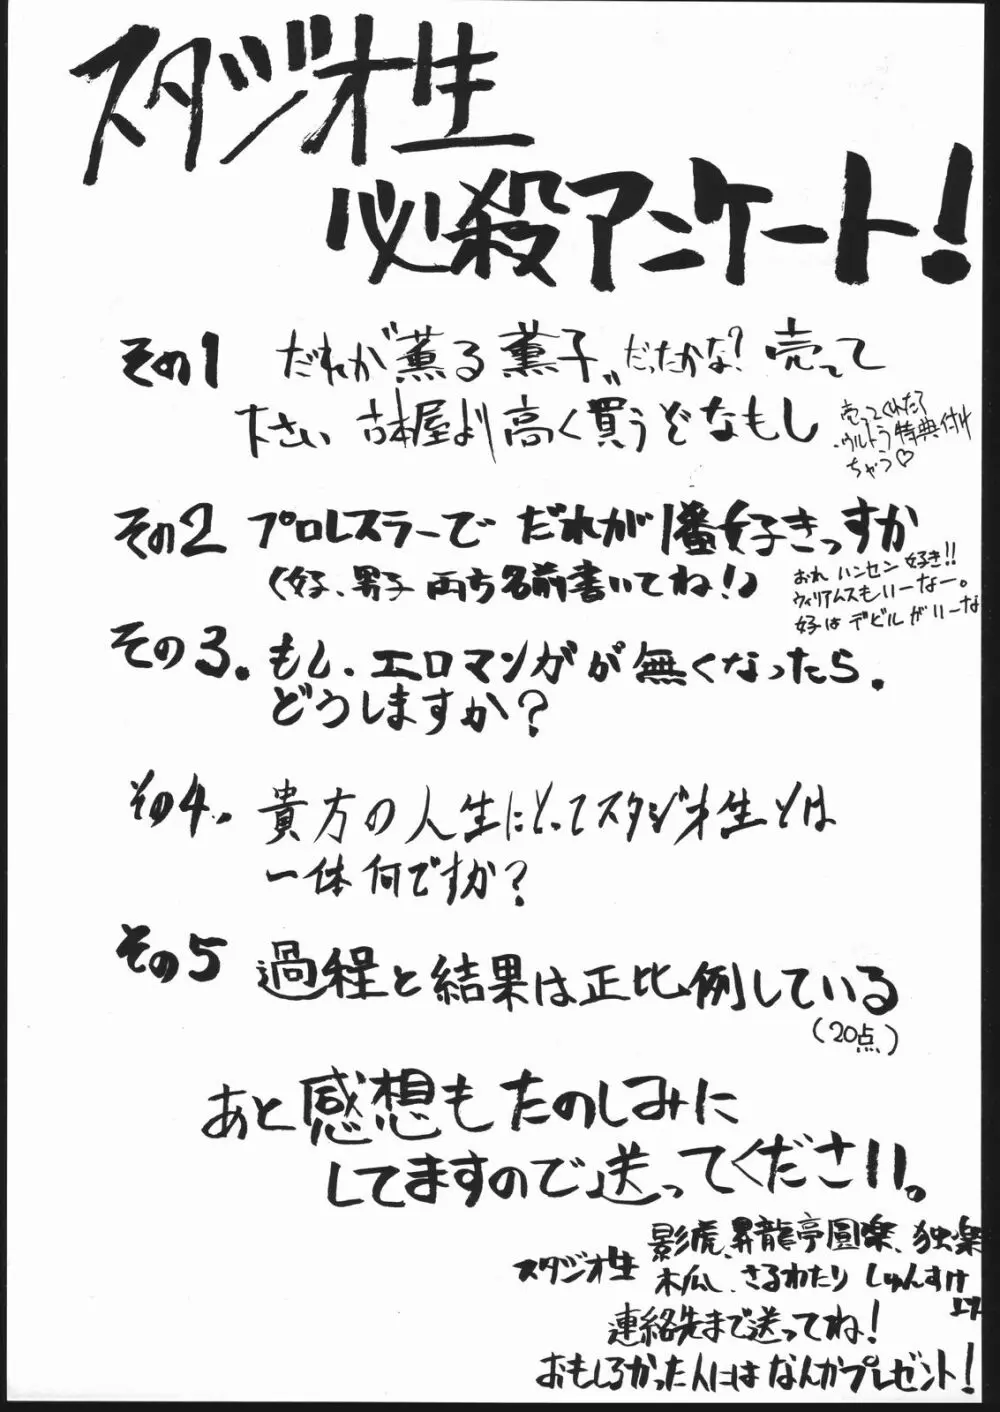 スタジオ生
必殺アンケート!
その1 だれが“薫る薫子”だったかな?売って
下さい 古本屋より高く買うぞなもし
売ってくれたら
ウルトラ特典付け
ちゃう♡
その2 プロレスラーで だれが1番好きっすか
(女子、男子 両方名前書いてね!)
おれ ハンセン 好き!!
ウィリアムスもいーなー。
女子は デビルがいーな
その3. もし、エロマンガが無くなったら、
どうしますか?
その4. 貴方の人生にとってスタジオ生とは
一体何ですか?
その5 過程と結果は正比例している
(20点)
あと感想もたのしみに
してますので送ってください。
スタジオ生 影虎、昇龍亭圓楽、独楽
木瓜、さるわたり しゅんすけ
連絡先まで送ってね!
おもしろかった人にはなんかプレゼント!